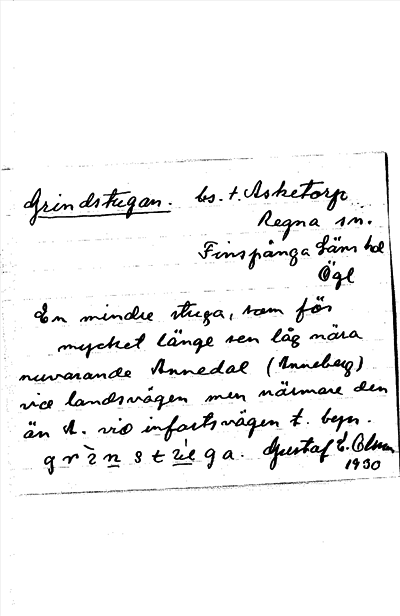 Grindstugan. bs. t. Asketorp
Regna sn.
Finspånga läns hd
Ögl
En mindre stuga, som för
mycket länge sen låg nära
nuvarande Annedal (Anneberg)
vid landsvägen men närmare den
än A. vid infartsvägen t. byn.
Gustaf E. Olsson
1930